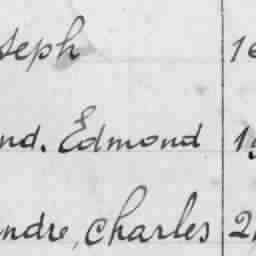 seph 16
nd. Edmond 19
ndre, Charles 2